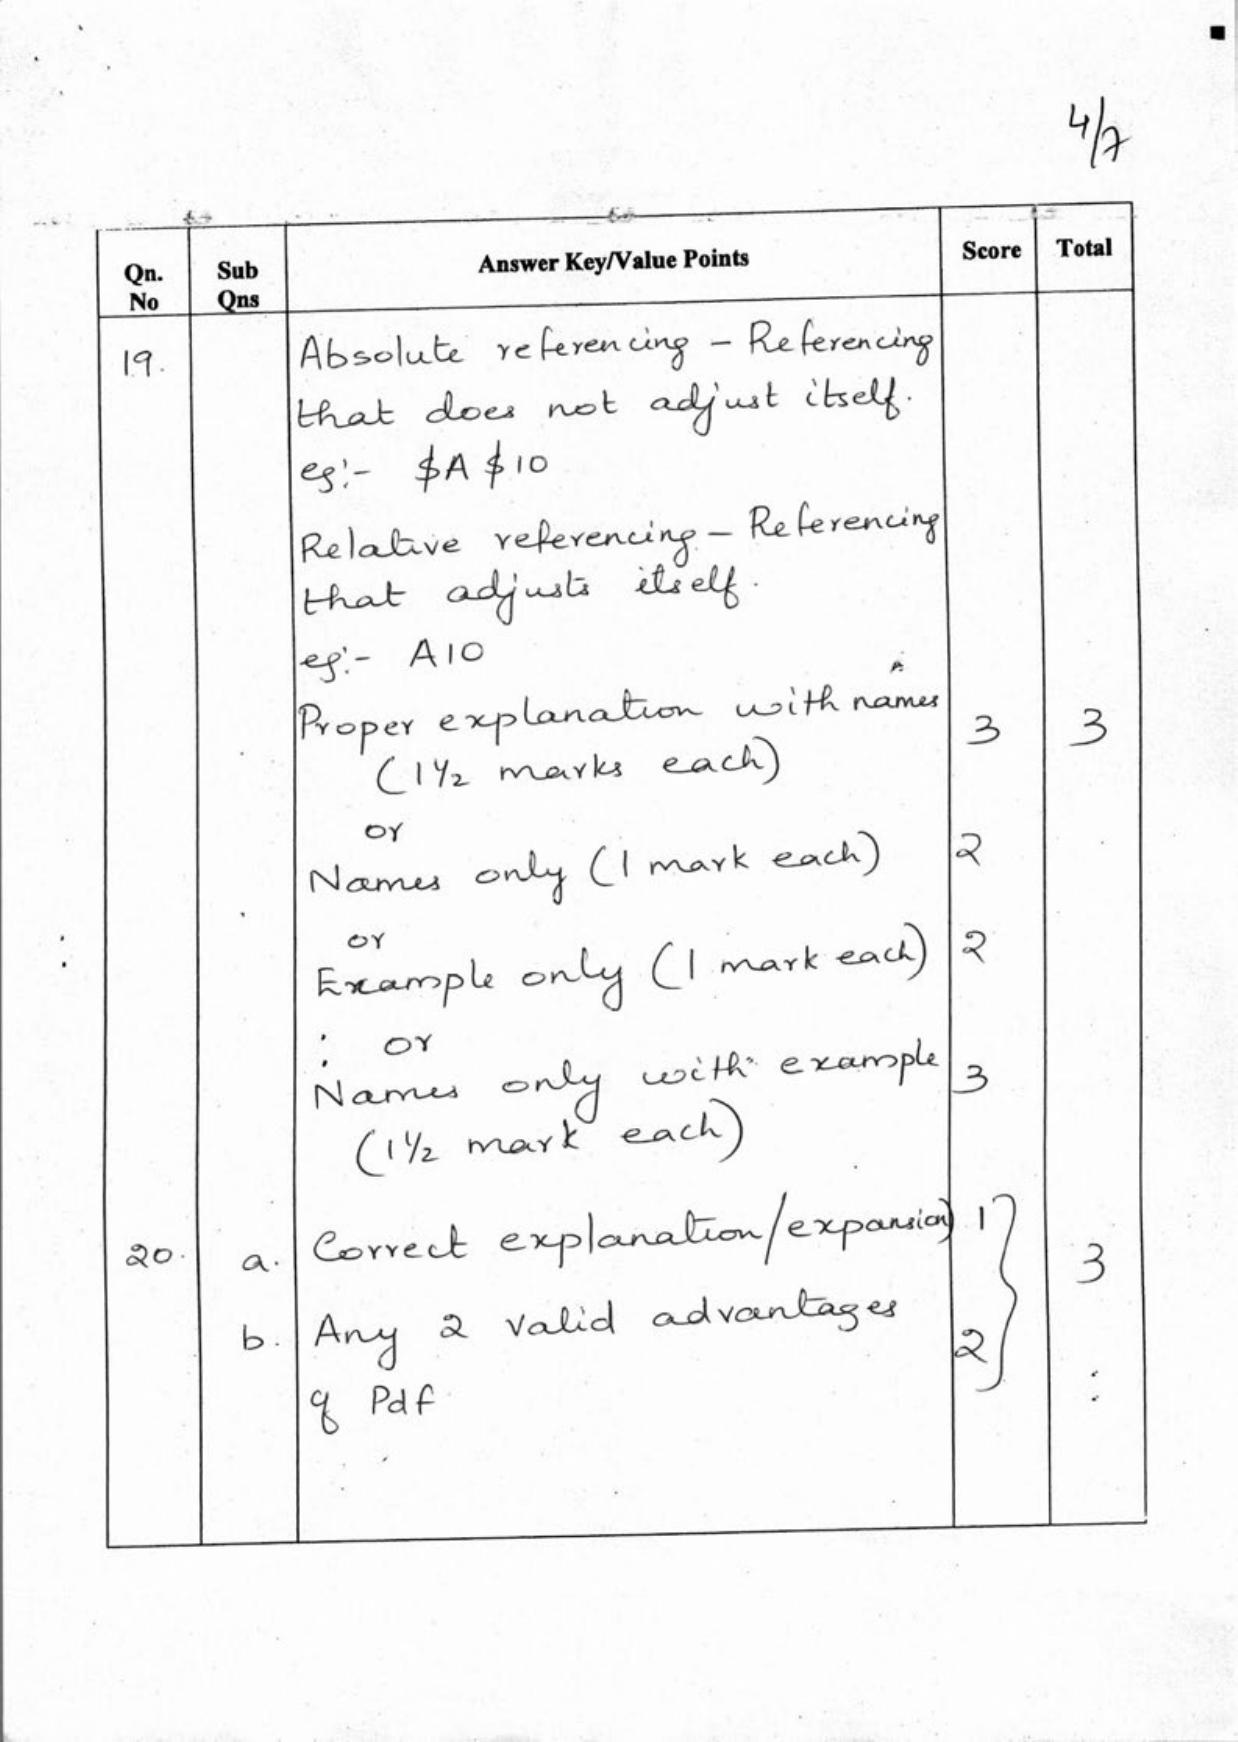 4/7
Qn. No | Sub Qns | Answer Key/Value Points | Score | Total
19. Absolute referencing - Referencing
that does not adjust itself.
eg:- $A $10
Relative referencing - Referencing
that adjusts itself.
eg:- A10
Proper explanation with names 3 3
(1 1/2 marks each)
or
Names only (1 mark each) 2
or
Example only (1 mark each) 2
or
Names only with example 3
(1 1/2 mark each)
20. a. Correct explanation/expansion 1 3
b. Any 2 valid advantages 2
of Pdf